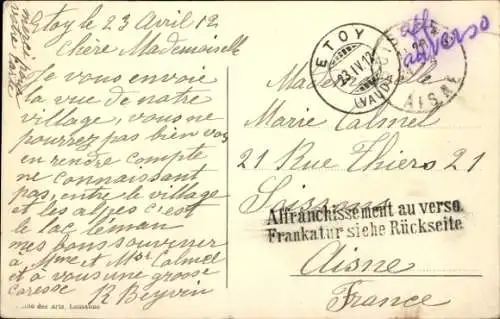 merci pour
votre carte
Etoy le 23 Avril 12
Chère Mademoiselle
Je vous envoie
la vue de notre
village, vous ne
pourrez pas bien vous
en rendre compte
ne connaissant
pas, entre le village
et les alpes c'est
le lac leman
mes bons souvenir
à Mme et Mr Calmel
et à vous une grosse
caresse R Beyvin
des Arts, Lausanne
ETOY
23.IV.12
(VAUD)
AISNE
aff.
au verso
Marie Calmel
21 Rue Thiers 21
Soissons
Affranchissement au verso.
Frankatur siehe Rückseite
Aisne
France